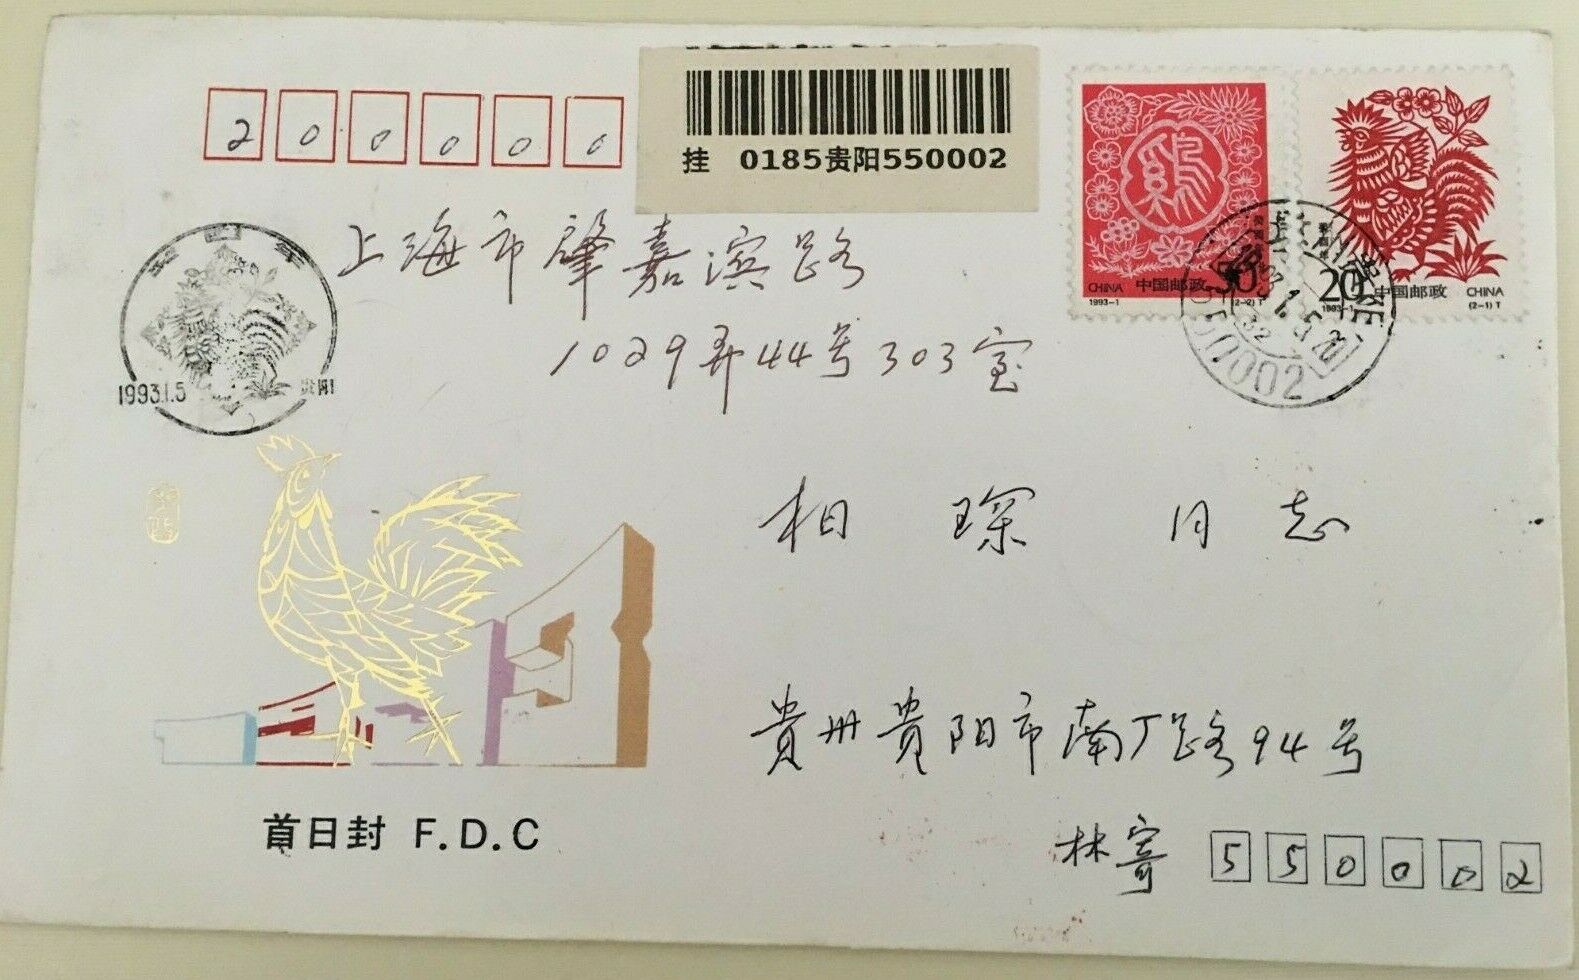 200000
挂 0185贵阳550002
上海市肇嘉浜路
1029弄44号303室
鸡
CHINA 中国邮政 50
1993-1 (2-2)T
20 中国邮政 CHINA
1993-1 (2-1)T
1993.1.5 贵阳
550002
相琛同志
貴州貴阳市南厂路94号
林寄 550002
首日封 F.D.C